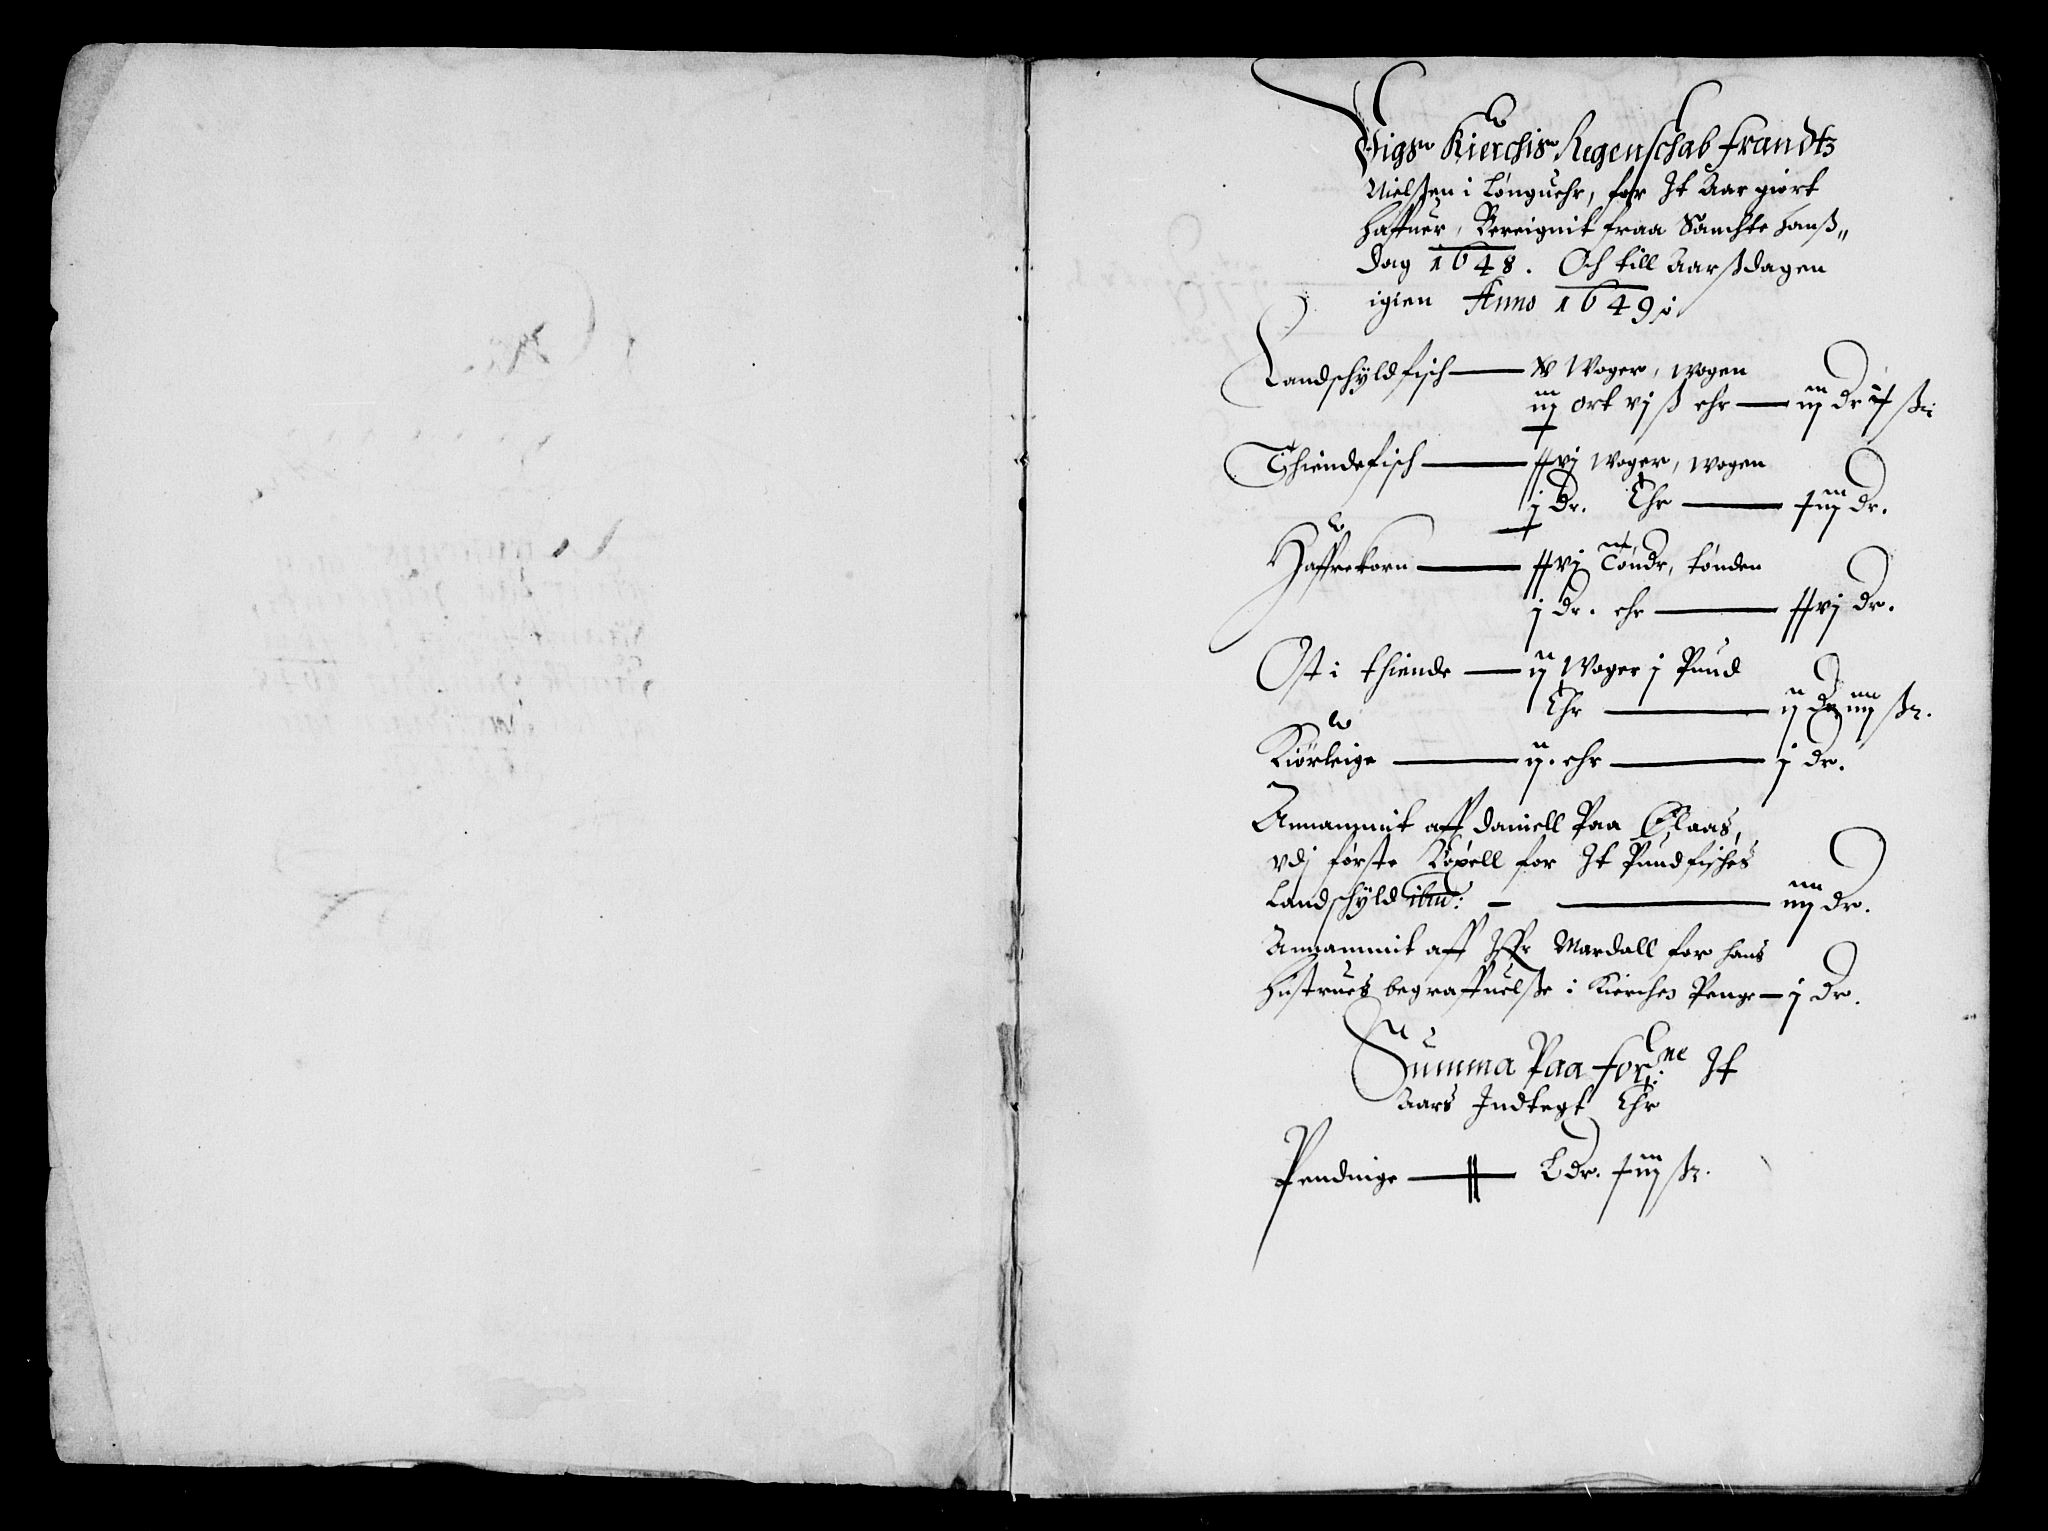 Vigs Kierchis Regenschab frandtz
Nielßen i Lønguehr, for It Aar giort
haffuer, Bereignit fraa Sanchte Hanß
dag 1648. Och till Aarßdagen
igien Anno 1649
Landschÿldfisch — x Woger, wogen
iij ort vj ß ehr — iij dr ß
Thiendefisch — xvj Woger, wogen
j dr. Ehr — xiij dr.
Haffrekorn — xxvj Tøndr, tønden
j dr. ehr — xxvj dr.
Ost i thiende — ij Woger j Pund
Ehr — ij dr iiij ß.
Kiørleige — ij. ehr — j dr.
Annammit aff daniell Paa
vdj første for It Pundfisches
Landschÿld ibm: — iiij dr.
Annammit aff Mardall for hans
hustrues begraffuelße i Kierches Penge — j dr.
Summa Paa for:ne It
Aars Indtegt Ehr
Pendinge — L dr. xiij ß.